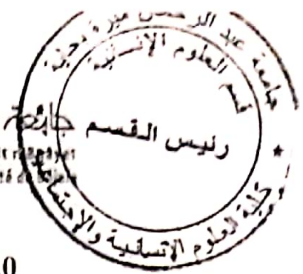 جامعة عبد الرحمن ميرة بجاية
قسم العلوم الإنسانية
رئيس القسم
كلية العلوم الإنسانية والإجتماعية
جامعة
0